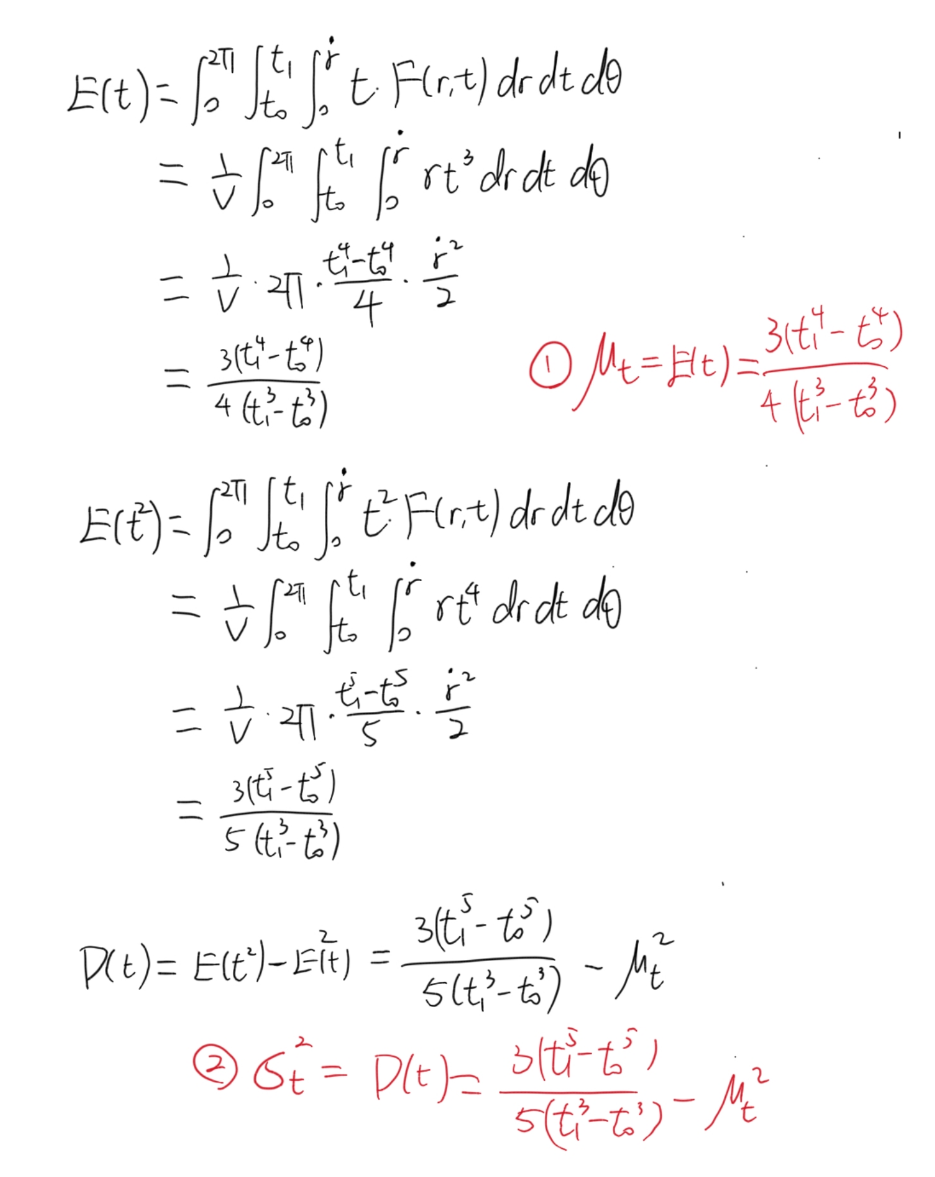 E(t) = ∫₀^{2π} ∫_{t₀}^{t₁} ∫₀^{ṙ} t · F(r,t) dr dt dθ
= 1/V ∫₀^{2π} ∫_{t₀}^{t₁} ∫₀^{ṙ} rt³ dr dt dθ
= 1/V · 2π · (t₁⁴ - t₀⁴)/4 · ṙ²/2
= 3(t₁⁴ - t₀⁴) / 4(t₁³ - t₀³)
① μ_t = E(t) = 3(t₁⁴ - t₀⁴) / 4(t₁³ - t₀³)
E(t²) = ∫₀^{2π} ∫_{t₀}^{t₁} ∫₀^{ṙ} t² · F(r,t) dr dt dθ
= 1/V ∫₀^{2π} ∫_{t₀}^{t₁} ∫₀^{ṙ} rt⁴ dr dt dθ
= 1/V · 2π · (t₁⁵ - t₀⁵)/5 · ṙ²/2
= 3(t₁⁵ - t₀⁵) / 5(t₁³ - t₀³)
D(t) = E(t²) - E²(t) = 3(t₁⁵ - t₀⁵) / 5(t₁³ - t₀³) - μ_t²
② σ_t² = D(t) = 3(t₁⁵ - t₀⁵) / 5(t₁³ - t₀³) - μ_t²